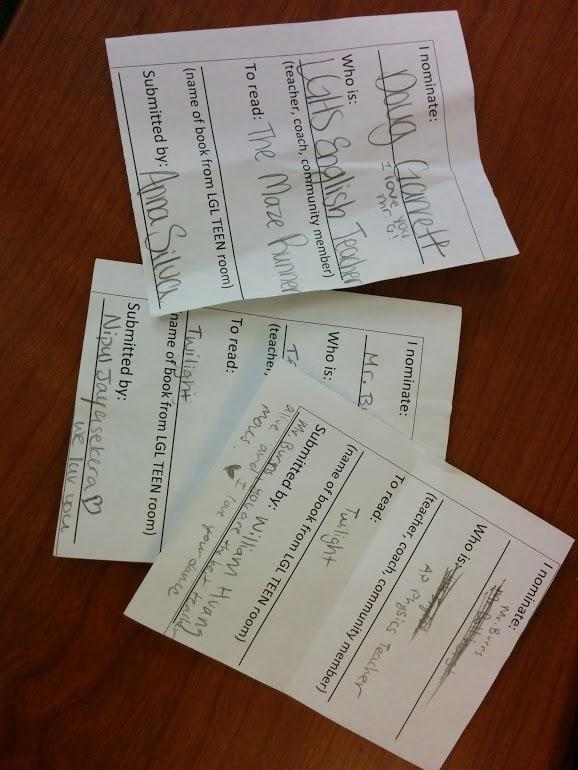 I nominate:
Doug Garrett
I love you
Mr. G!
Who is:
LGHS English Teacher
(teacher, coach, community member)
To read: The Maze Runner
(name of book from LGL TEEN room)
Submitted by: Anna Silva
I nominate:
Mr. Bu
Who is:
(teacher,
To read:
Twilight
name of book from LGL TEEN room)
Submitted by:
Nipul Jayasekera
we luv you
I nominate:
Mr. Burns
Who is:
AP Physics Teacher
(teacher, coach, community member)
To read:
Twilight
(name of book from LGL TEEN room)
Submitted by: William Huang
Mr. Burns
I love your dance
moves and you are the best teacher
alive